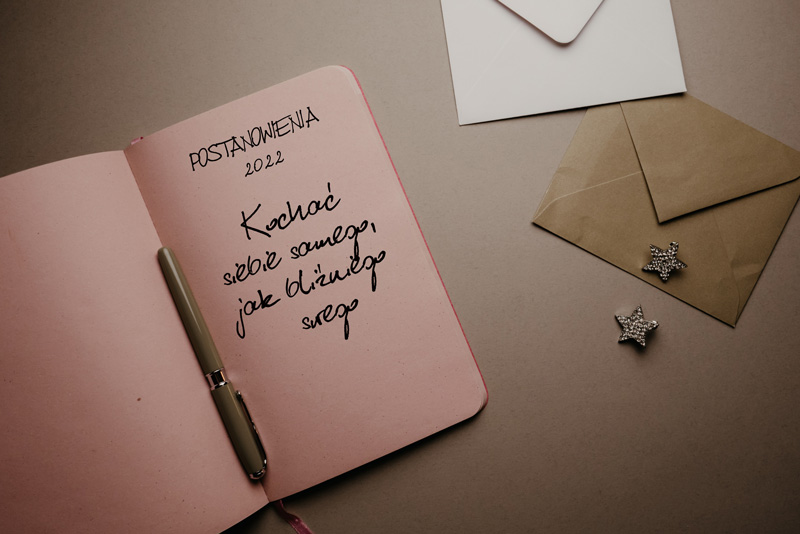 POSTANOWIENIA
2022
Kochać
siebie samego,
jak bliźniego
swego